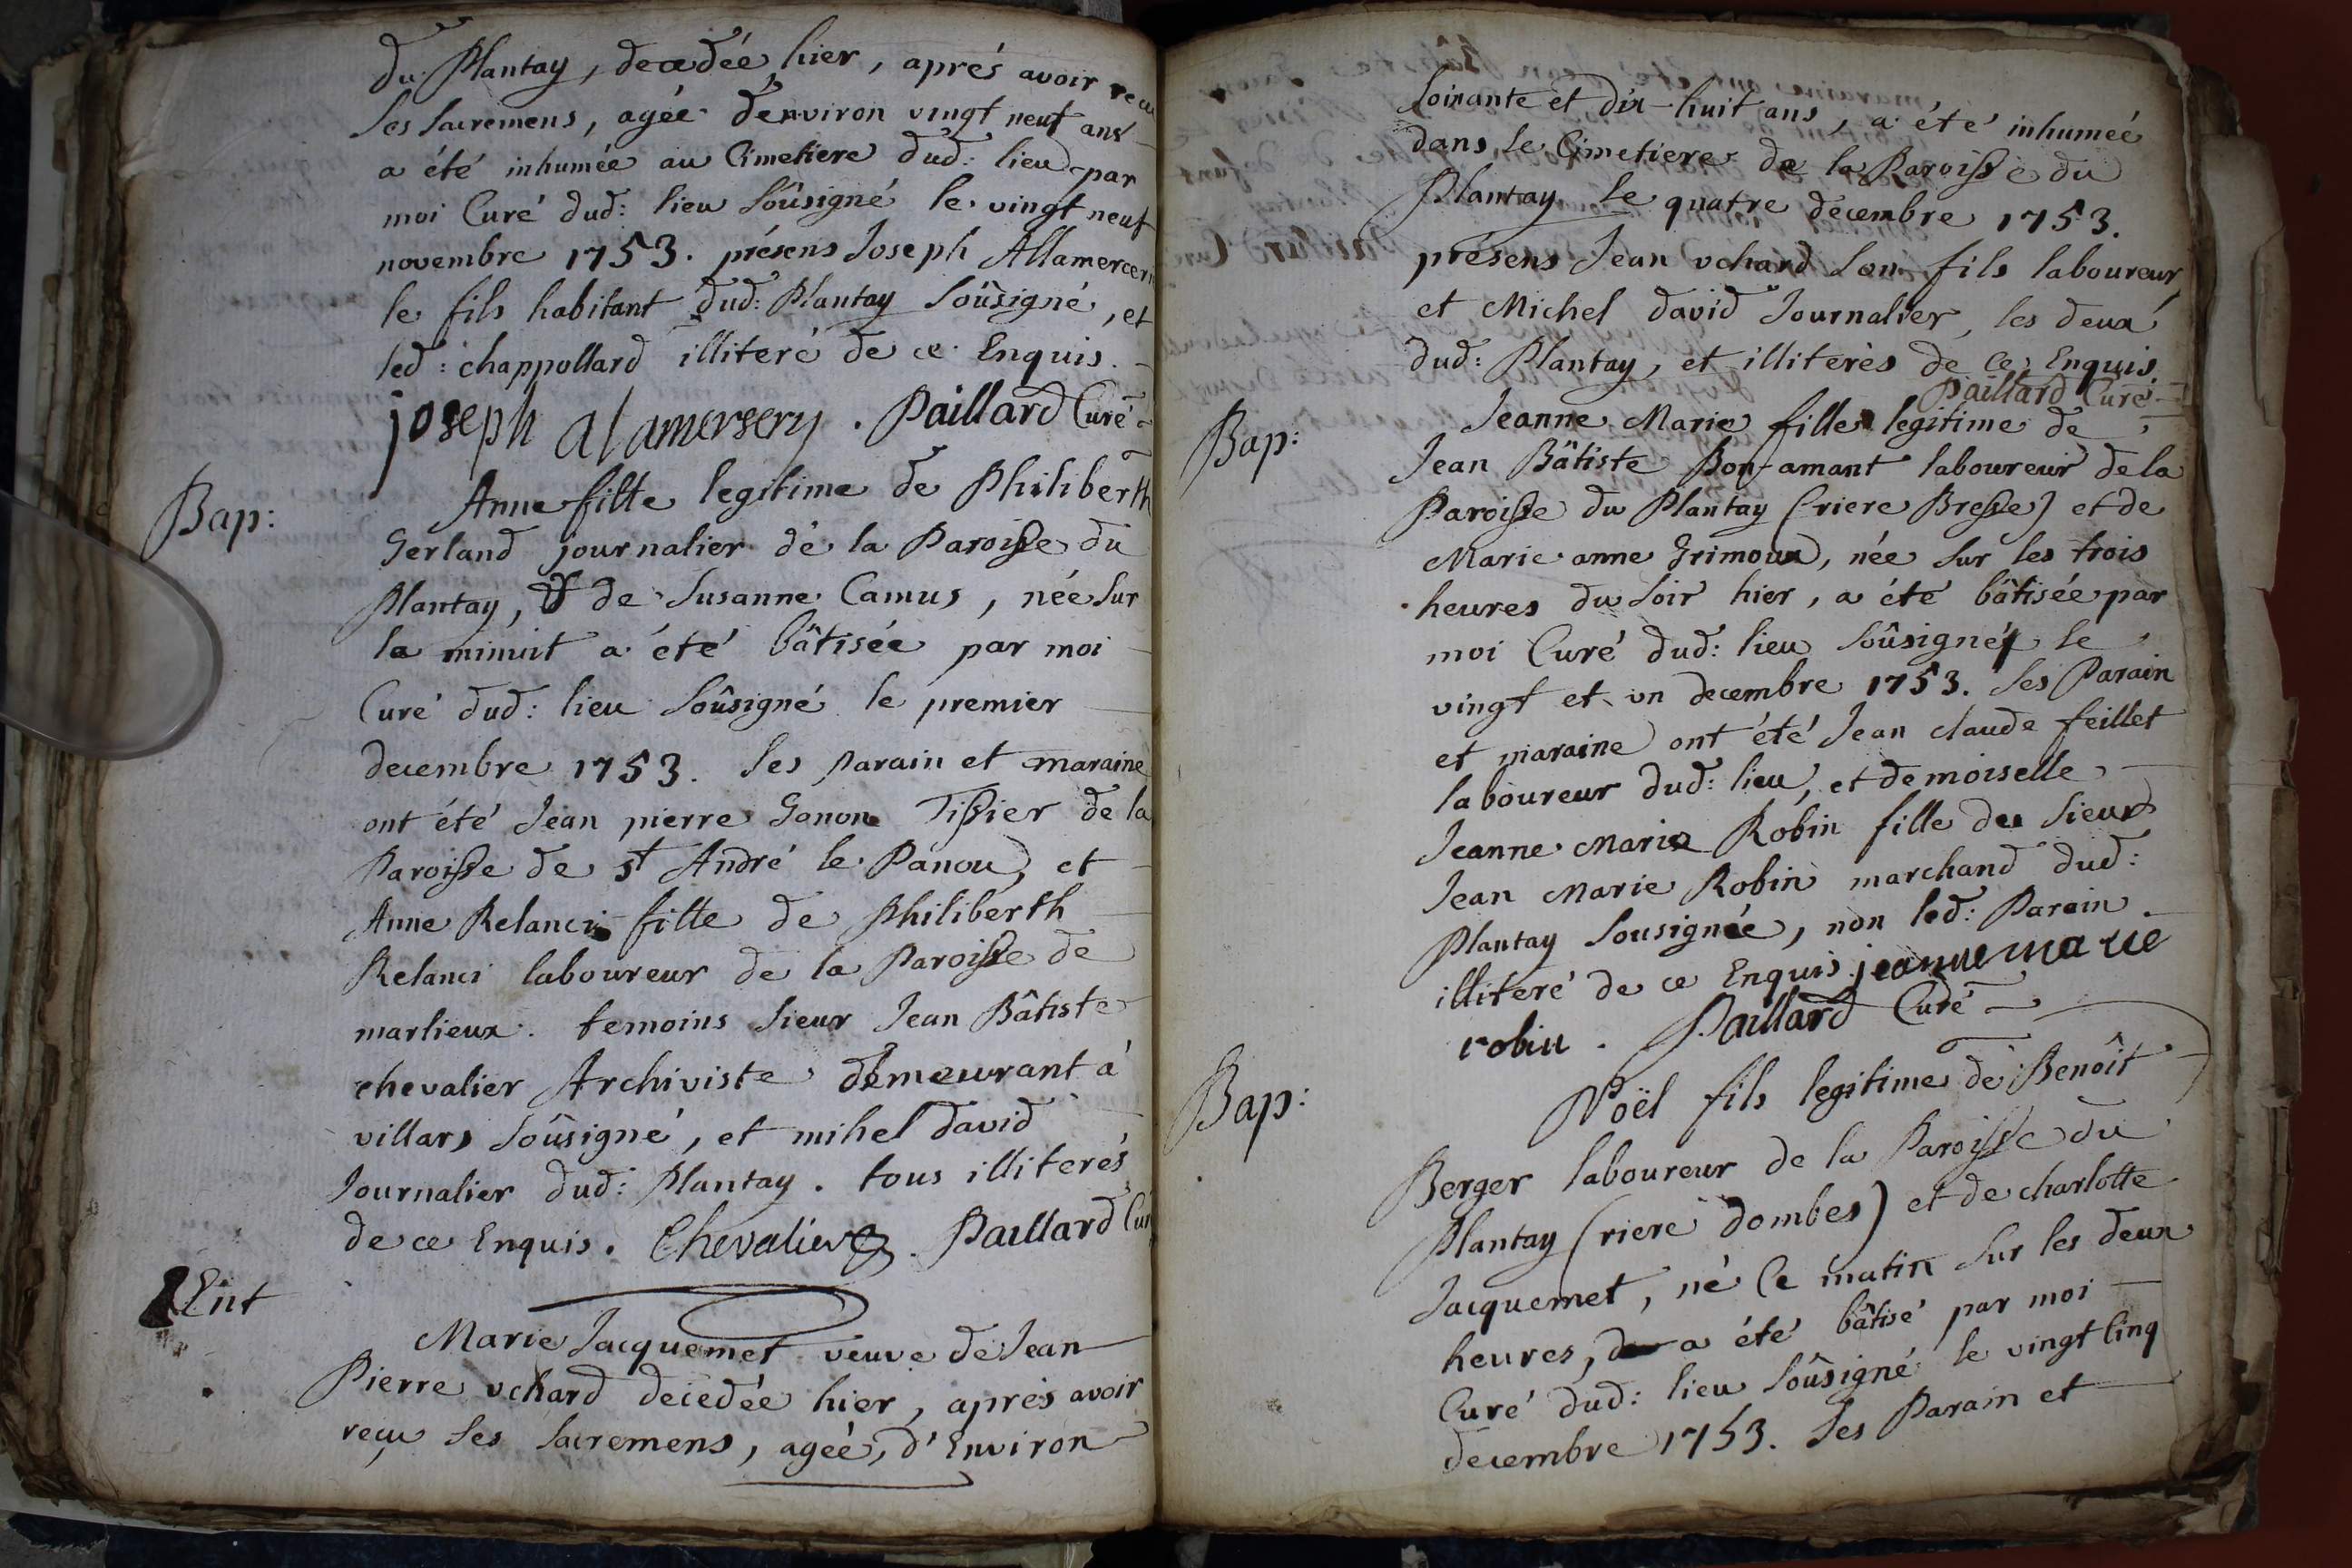 du Plantay, decedée hier, aprés avoir recu
ses sacremens, agée d'environ vingt neuf ans
a été inhumée au Cimetiere dud: lieu par
moi Curé dud: lieu soûsigné le vingt neuf
novembre 1753. présens Joseph Allamercery
le fils habitant dud: Plantay soûsigné, et
led: chappollard illiteré de ce Enquis.
joseph alamersery. Paillard Curé
Bap:
Anne fille legitime de Philiberth
Gerland journalier de la Paroisse du
Plantay, & de Susanne Camus, née sur
la minuit a été bâtisée par moi
Curé dud: lieu soûsigné le premier
decembre 1753. ses parain et maraine
ont été Jean pierre Ganon Tissier de la
Paroisse de st André le Panou, et
Anne Relanci fille de Philiberth
Relanci laboureur de la Paroisse de
marlieux. temoins sieur Jean Bâtiste
chevalier Archiviste demeurant à
villars soûsigné, et mihel david
Journalier dud: Plantay. tous illiterés
de ce Enquis. Chevalier. Paillard Curé
Ent
Marie Jacquemet veuve de Jean
Pierre vchard decedée hier, aprés avoir
reçu ses sacremens, agée, d'Environ
soixante et dix-huit ans, a été inhumée
dans le Cimetiere de la Paroisse du
Plantay le quatre decembre 1753.
présens Jean vchard son fils laboureur
et Michel david Journalier, les deux
dud: Plantay, et illiterés de ce Enquis
Paillard Curé
Bap:
Jeanne Marie fille legitime de
Jean Bâtiste Bon-amant laboureur de la
Paroisse du Plantay (riere Bresse) et de
Marie anne Grimoud, née sur les trois
heures du soir hier, a été bâtisée par
moi Curé dud: lieu soûsigné le
vingt et un decembre 1753. ses Parain
et maraine ont été Jean claude feillet
laboureur dud: lieu, et demoiselle
Jeanne Marie Robin fille du sieur
Jean Marie Robin marchand dud:
Plantay sousignée, non led: Parain
illiteré de ce Enquis. jeanne marie
robin. Paillard Curé
Bap:
Noël fils legitime de Benoît
Berger laboureur de la Paroisse du
Plantay (riere dombes) et de charlotte
Jacquemet, né ce matin sur les deux
heures, a été bâtisé par moi
Curé dud: lieu soûsigné le vingt cinq
decembre 1753. ses Parain et